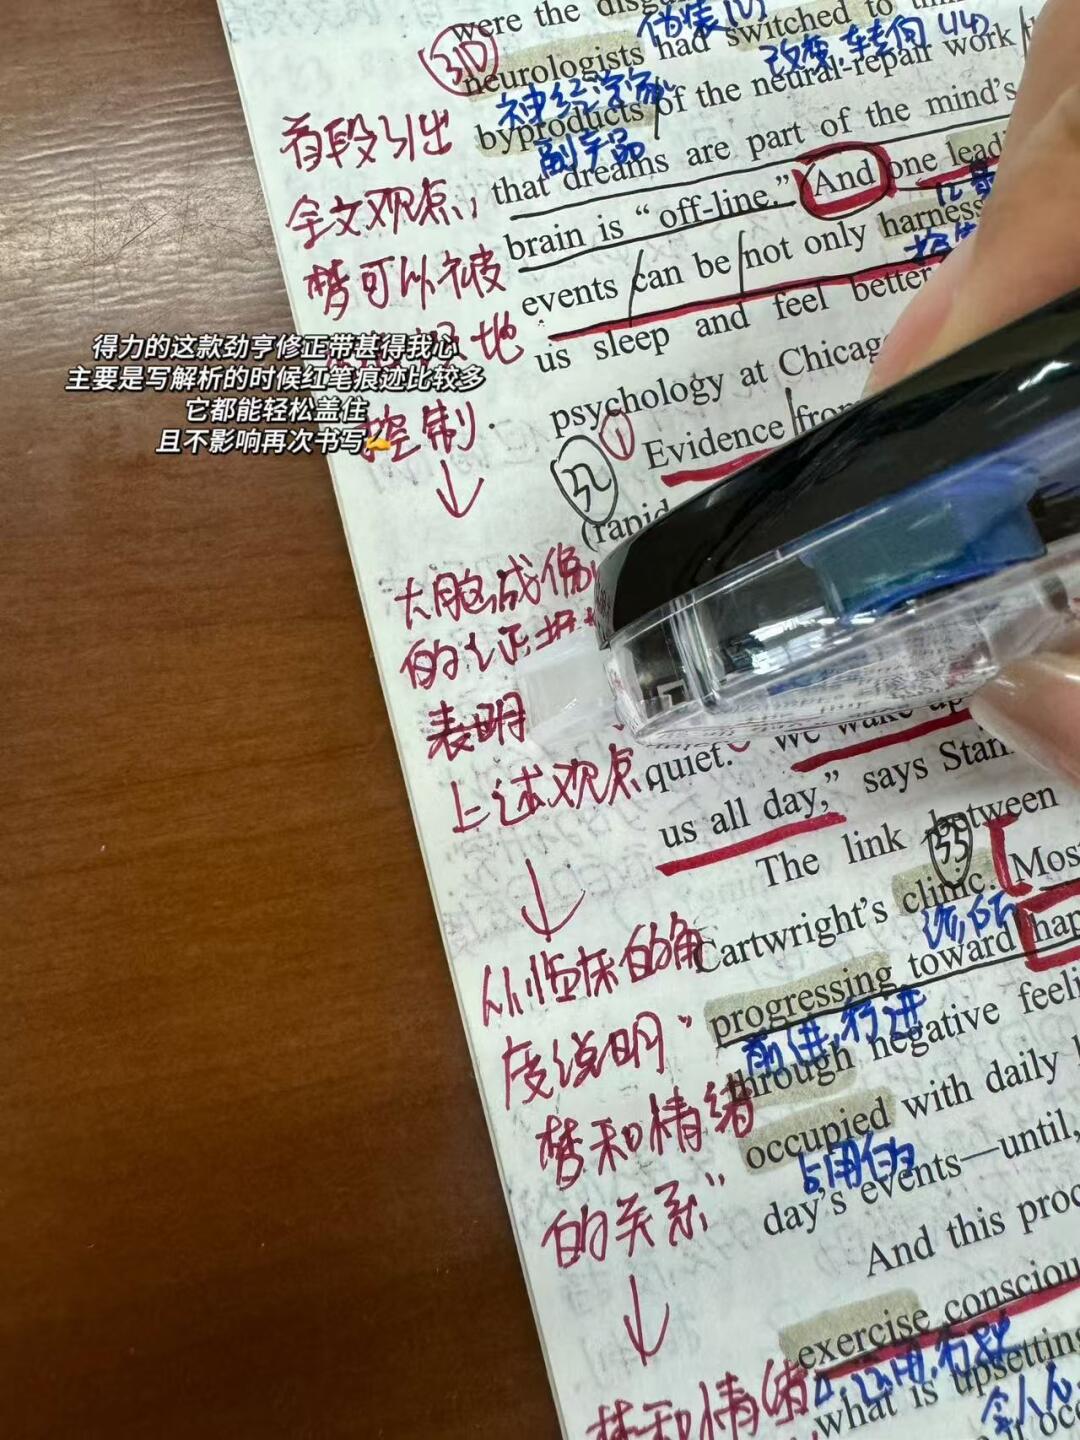 were the
neurologists had switched to
byproducts of the neural-repair work
that dreams are part of the mind's
brain is “off-line.” And one lead
events can be not only harness
us sleep and feel better
psychology at Chicag
Evidence from
(rapid
quiet. We wake up
us all day,” says Stan
The link between
Cartwright's clinic. Mos
progressing toward hap
through negative feeli
occupied with daily
day's events—until,
And this proc
exercise conscious
what is upsetting
伪装
改变.转向
神经学家
副产品
诊所
前进,行进
占用的
31
首段引出
全文观点,
梦可以被
地
控制
↓
大脑成像
的证据
表明
上述观点
↓
从临床的角
度说明“
梦和情绪
的关系”
↓
梦和情绪
32
①
33
得力的这款劲亨修正带甚得我心
主要是写解析的时候红笔痕迹比较多
它都能轻松盖住
且不影响再次书写✍️